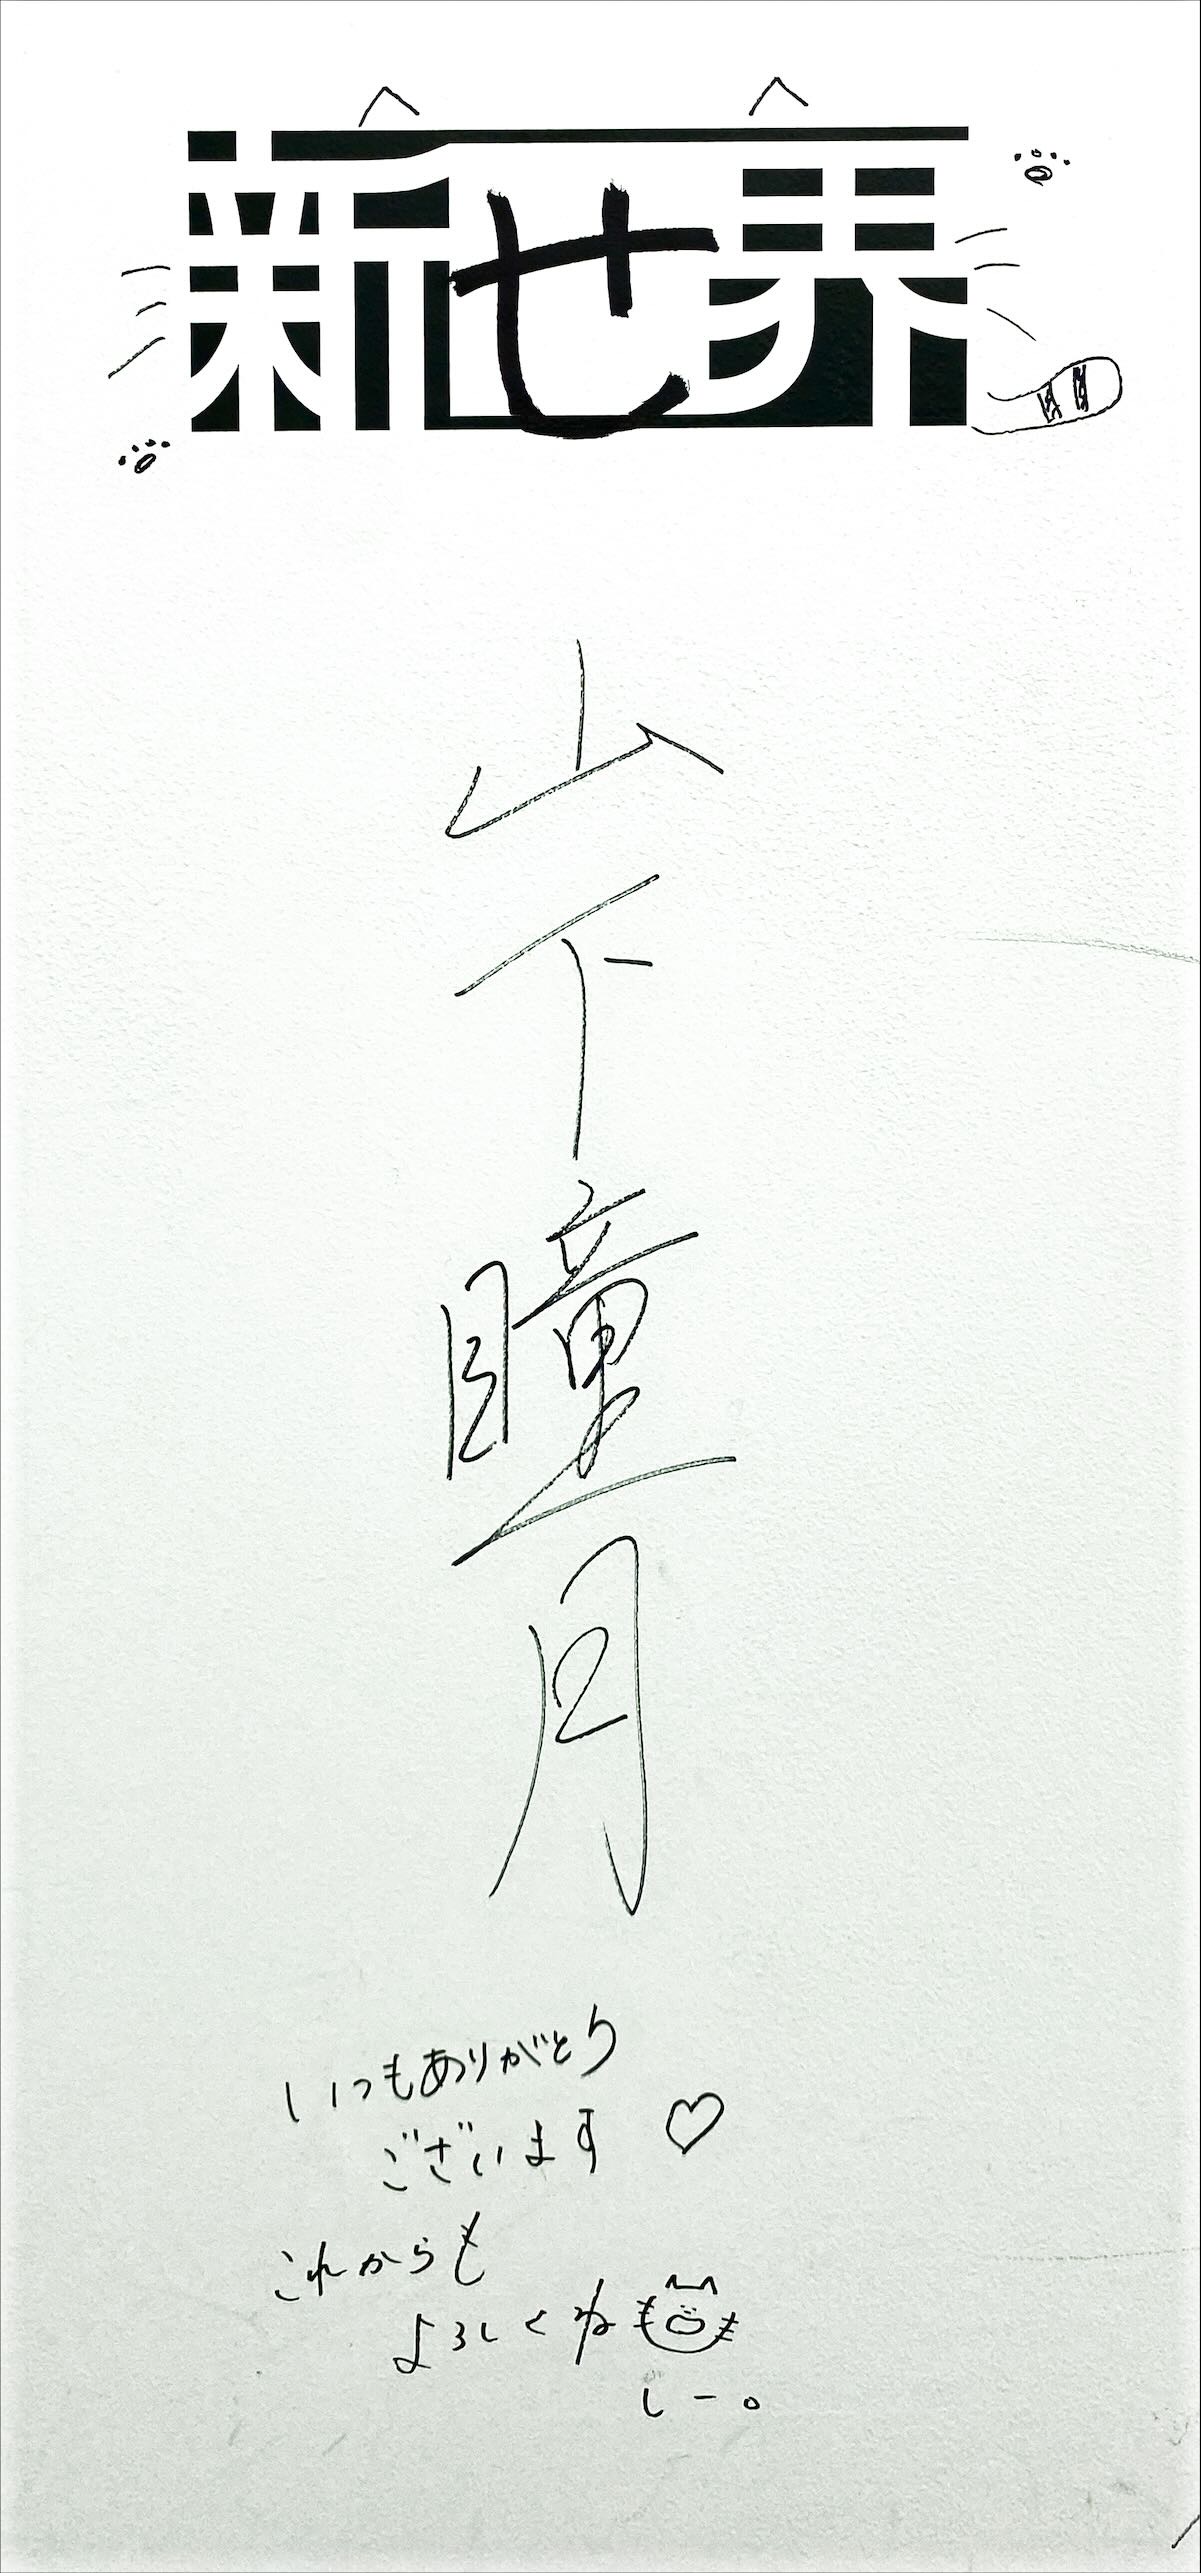 新せ界
山下瞳月
いつもありがとう
ございます♡
これからも
よろしくね
じー。